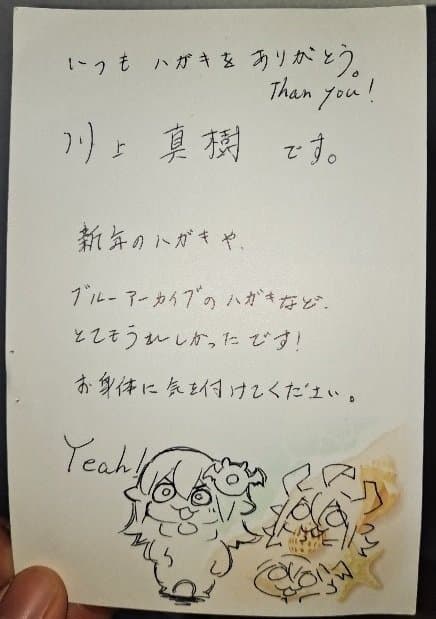 いつも ハガキを ありがとう。
Than you!
川上 真樹 です。
新年のハガキや、
ブルーアーカイブのハガキなど、
とてもうれしかったです!
お身体に気を付けてください。
Yeah!